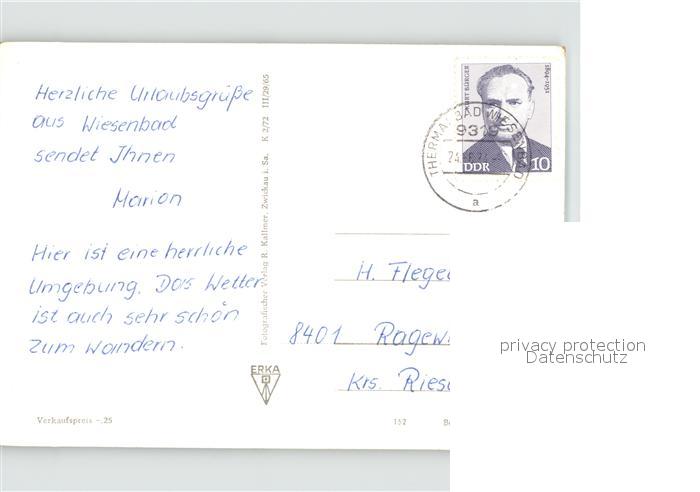 Herzliche Urlaubsgrüße
aus Wiesenbad
sendet Ihnen
Marion
Hier ist eine herrliche
Umgebung. Das Wetter
ist auch sehr schön
zum wandern.
Verkaufspreis -.25
Fotografischer Verlag R. Kallmer, Zwickau i. Sa. K 2/72 III/29/65
ERKA
KURT BÜRGER
1894-1951
DDR
10
THERMALBAD WIESENBAD
9319
a
H. Flege
8401 Ragew
Krs. Ries
152
privacy protection
Datenschutz